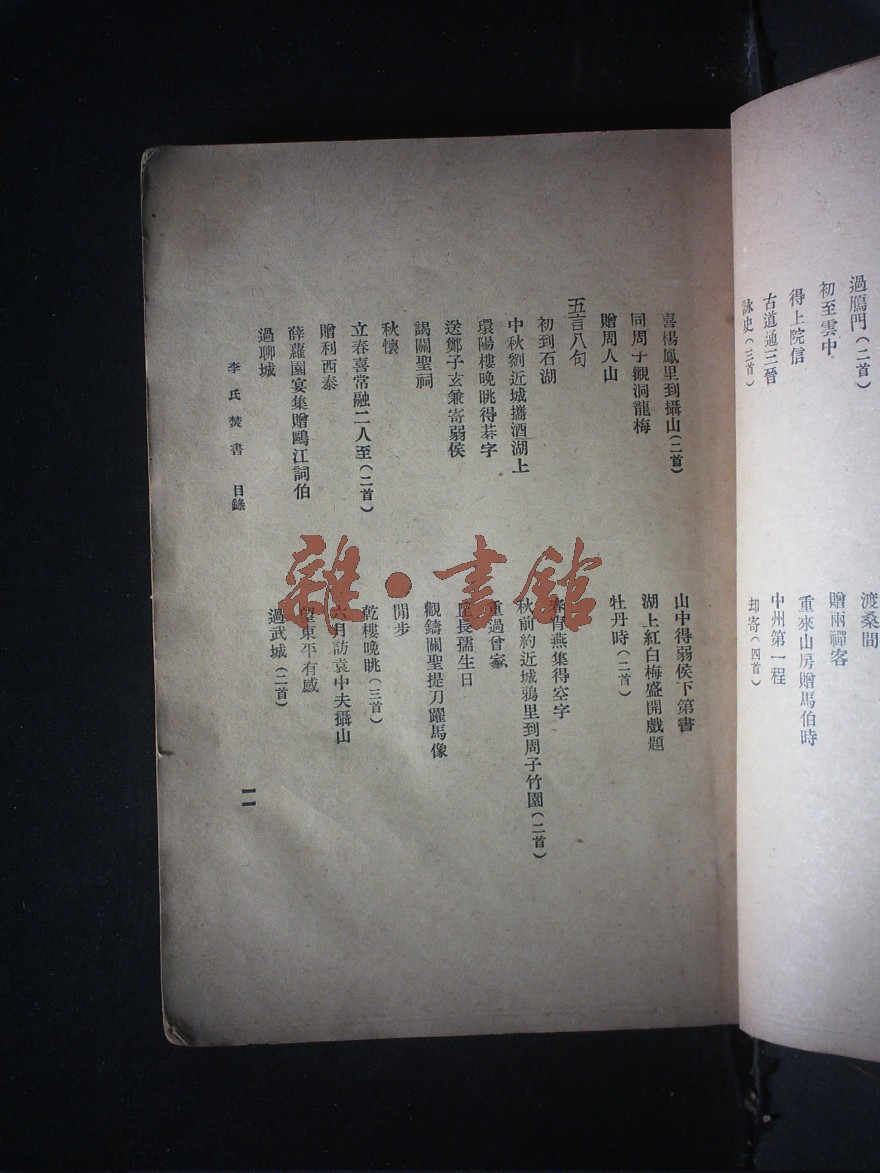 過鴈門(二首)
渡桑間
初至雲中
贈兩禪客
得上院信
重來山房贈馬伯時
古道通三晉
中州第一程
詠史(三首)
却寄(四首)
喜楊鳳里到攝山(二首)
山中得弱侯下第書
同周子觀洞龍梅
湖上紅白梅盛開戲題
贈周人山
牡丹時(二首)
五言八句
初到石湖
春宵燕集得空字
中秋劉近城攜酒湖上
秋前約近城鴉里到周子竹園(二首)
環陽樓晚眺得碁字
重過曾家
送鄭子玄兼寄弱侯
丘長孺生日
謁關聖祠
觀鑄關聖提刀躍馬像
秋懷
閒步
立春喜常融二人至(二首)
乾樓晚眺(三首)
贈利西泰
六月訪袁中夫攝山
薛蘿園宴集贈鷗江詞伯
望東平有感
過聊城
過武城(二首)
李氏焚書 目錄
一一
雜·書館